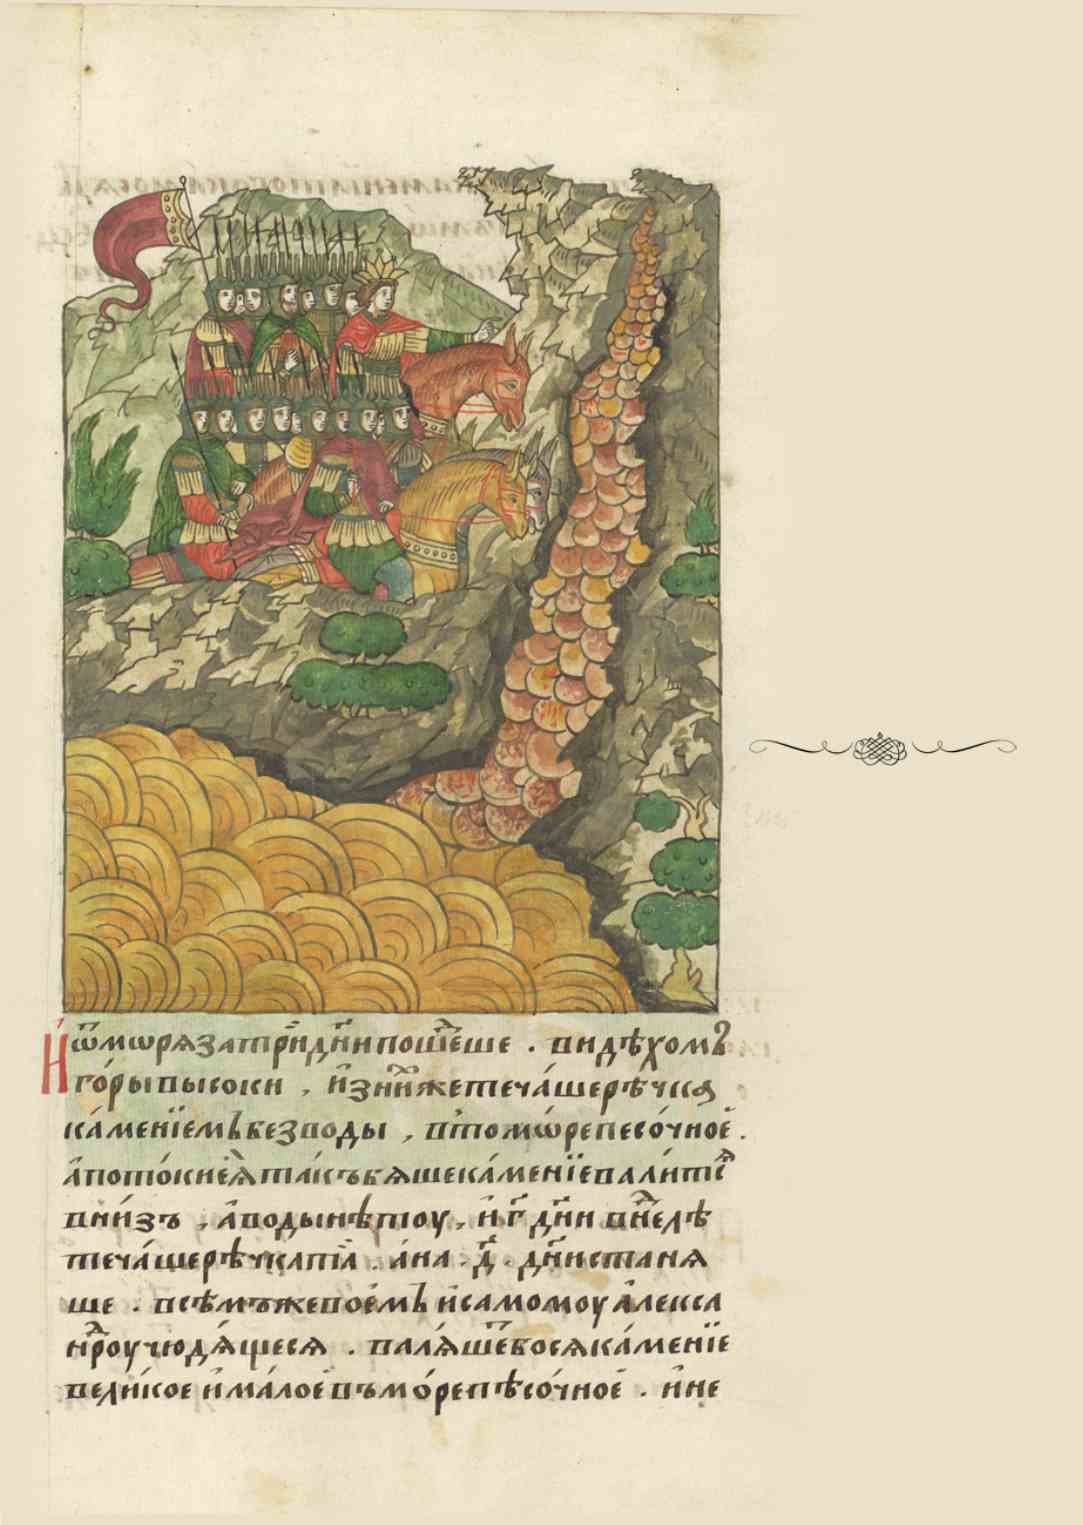 И ѿ мѡря за три дн҃и пошеⷣше . видѣхомъ
горы высоки , и з ниⷯ же течаше рѣчка
каменїемъ без воды , в то мѡре песочное .
а по токи еѧ такъ бяше каменїе валитсѧ
вниⷥ , а воды нѣтоу , и г҃ дн҃и в неⷣлѣ
течаше рѣчка та . а на . д҃ . дн҃и станя
ше . всѣмъ же воемъ и самомоу алекса
нⷣроу чюдящеся . валяшеⷮ бо ся каменїе
великое и малое въ море пѣсочное . и не